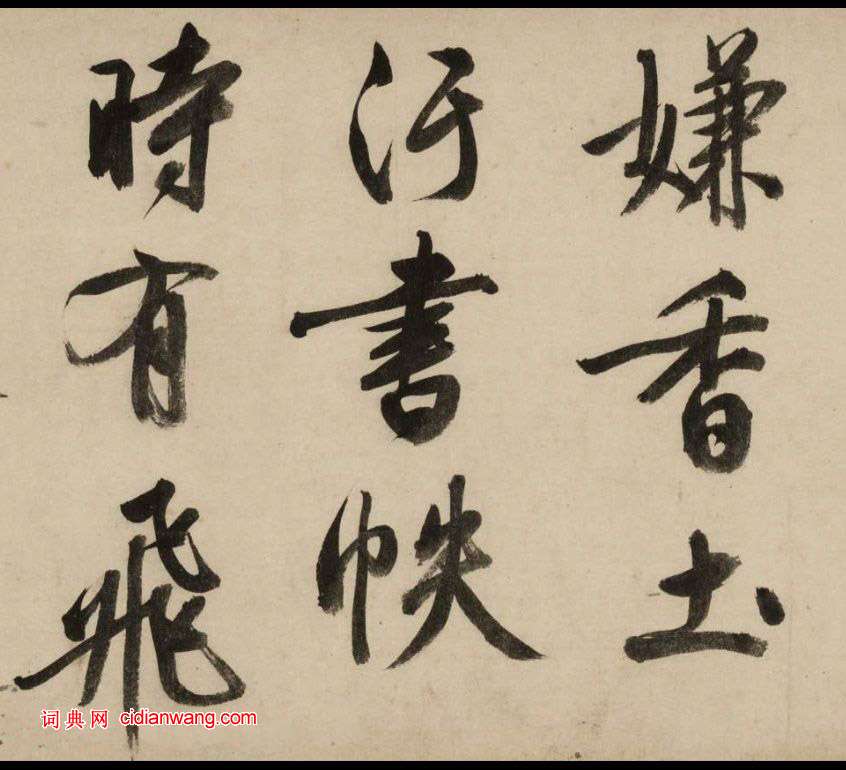 嫌香土
汙書帙
時有飛
词典网 cidianwang.com